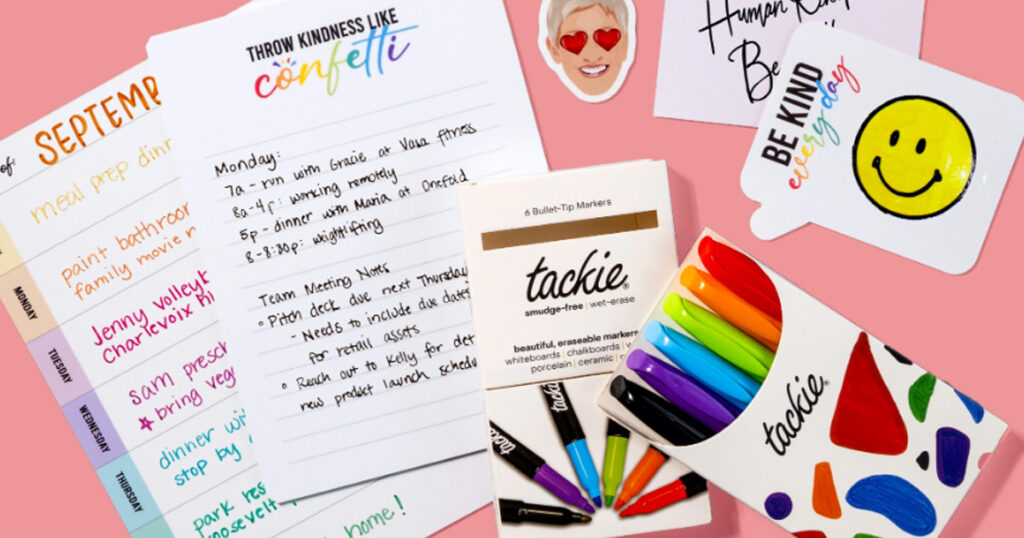 of:
SEPTEMB
meal prep dinn
MONDAY
paint bathroom
family movie n
TUESDAY
Jenny Volleyb
Charlevoix
WEDNESDAY
Sam presch
* bring veg
THURSDAY
dinner wi
stop by
park res
roosevelt
home!
THROW KINDNESS LIKE
confetti
Monday:
7a - run with Gracie at Vasa fitness
8a-4p: working remotely
5p - dinner with Maria at Onefold
8-8:30p: weightlifting
Team Meeting Notes
• Pitch deck due next Thursday
- Needs to include due dates
for retail assets
• Reach out to Kelly for det
new product launch schedu
6 Bullet-Tip Markers
tackie®
smudge-free | wet-erase
beautiful, eraseable markers
whiteboards | chalkboards |
porcelain | ceramic |
tackie
tackie®
Human Kin
Be
BE KIND
everyday